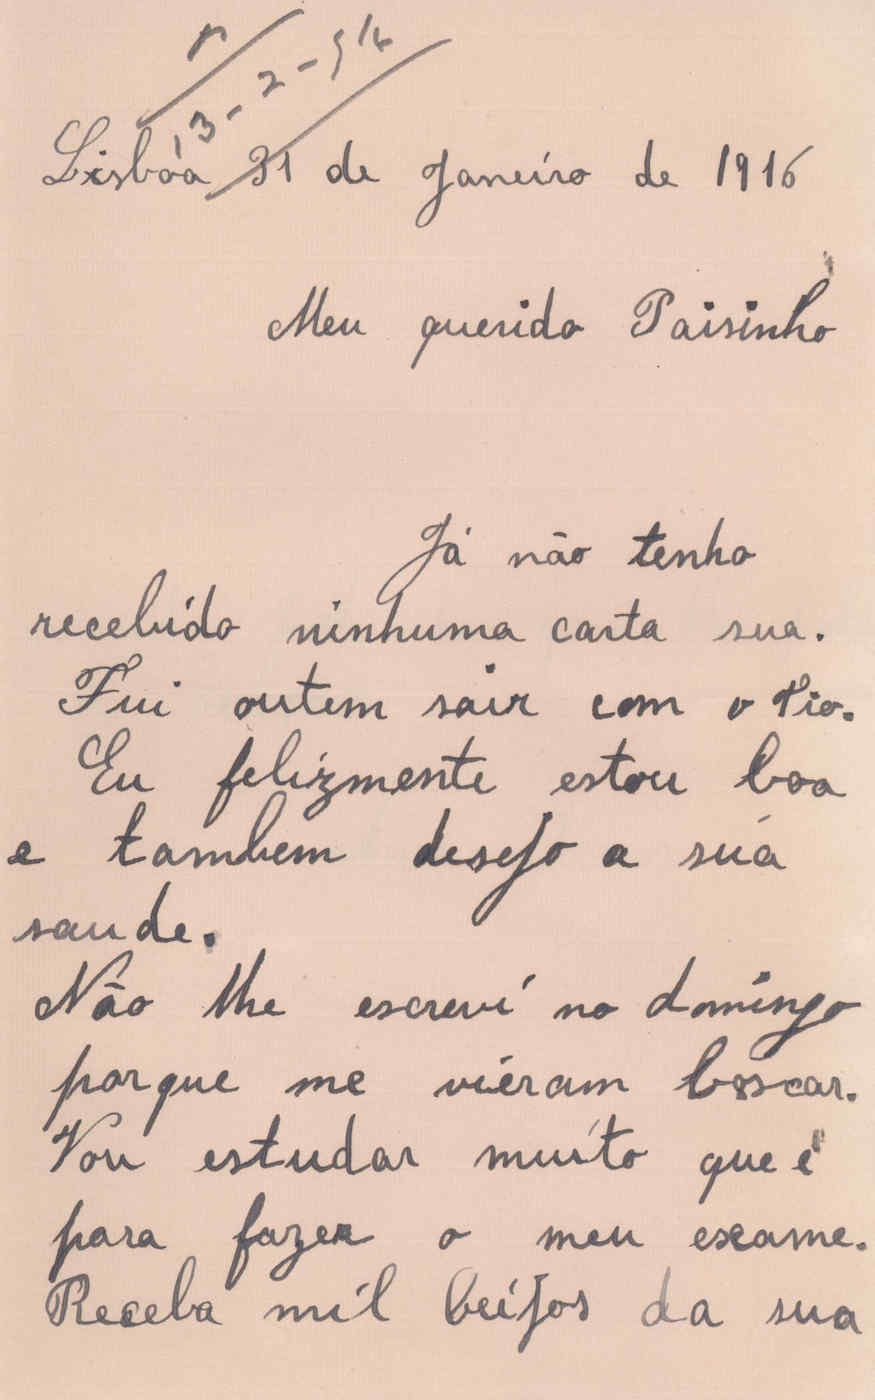 13-2-916
Lisbôa 31 de Janeiro de 1916
Meu querido Paisinho
Já não tenho
recebido ninhuma carta sua.
Fui outem sair com o Tio.
Eu felizmente estou boa
e tambem desejo a súa
saude.
Não lhe escrevi no domingo
porque me vieram boscar.
Vou estudar muito que é
para fazer o meu exame.
Receba mil beijos da sua